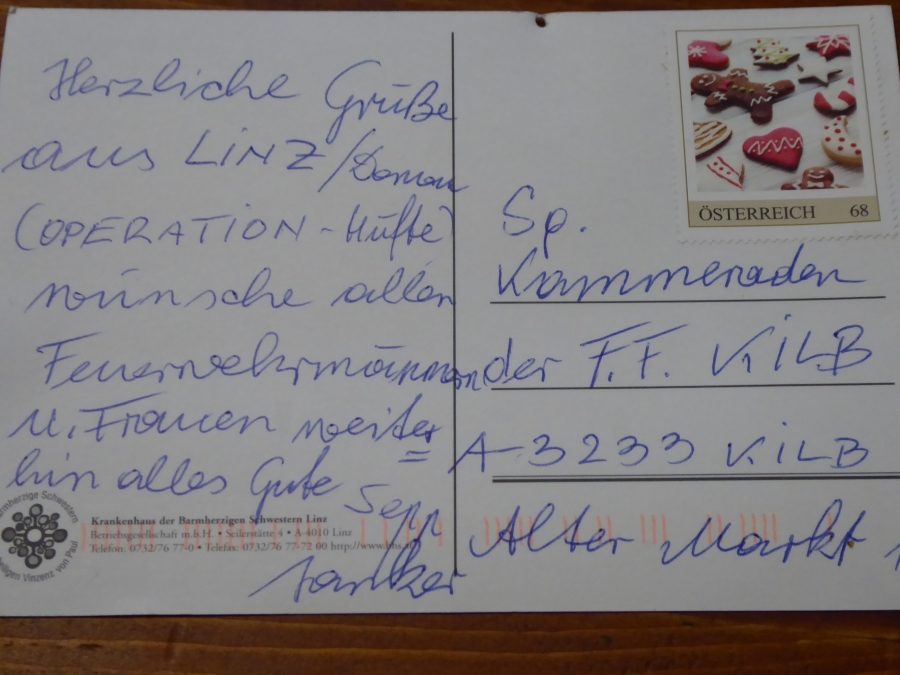 Herzliche Grüße
aus LINZ/Donau
(OPERATION-Hüfte)
wünsche allen
Feuerwehrmännern
u. Frauen weiter=
hin alles Gute
Sepp
ÖSTERREICH 68
Sp.
Kammeraden
der F.F. KILB
A-3233 KILB
Alter Markt 1
Krankenhaus der Barmherzigen Schwestern Linz
Betriebsgesellschaft m.b.H. • Seilerstätte 4 • A-4010 Linz
Telefon: 0732/76 77-0 • Telefax: 0732/76 77-72 00 http://www.bhs